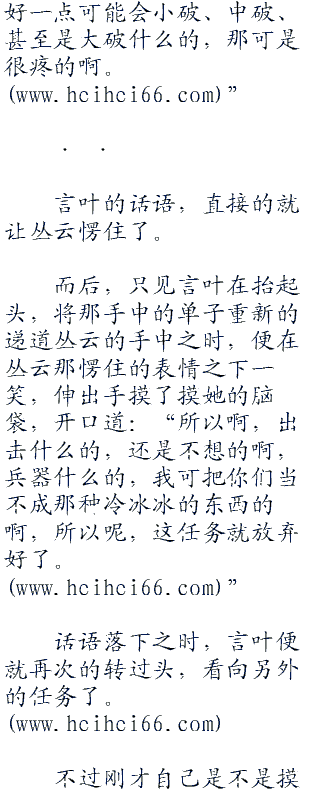 好一点可能会小破、中破、
甚至是大破什么的，那可是
很疼的啊。
(www.hcihci66.com)”
． ．
言叶的话语，直接的就
让丛云愣住了。
而后，只见言叶在抬起
头，将那手中的单子重新的
递道丛云的手中之时，便在
丛云那愣住的表情之下一
笑，伸出手摸了摸她的脑
袋，开口道：“所以啊，出
击什么的，还是不想的啊，
兵器什么的，我可把你们当
不成那种冷冰冰的东西的
啊，所以呢，这任务就放弃
好了。
(www.hcihci66.com)”
话语落下之时，言叶便
就再次的转过头，看向另外
的任务了。
(www.hcihci66.com)
不过刚才自己是不是摸